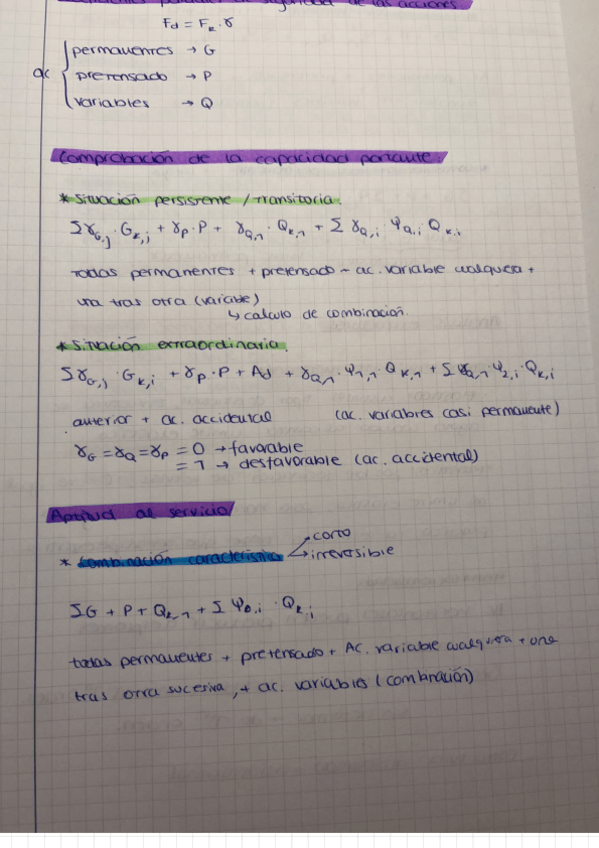 parciales de seguridad de las acciones
Fd = Fk · γ
ac
permanentes → G
pretensado → P
variables → Q
Comprobación de la capacidad portante/
* Situación persistente / transitoria.
Σγ_G,j · G_k,j + γ_P · P + γ_Q,1 · Q_k,1 + Σ γ_Q,i ψ_0,i Q_k,i
todas permanentes + pretensado + ac. variable cualquiera +
una tras otra (variable)
↳ calculo de combinación.
* Situación extraordinaria.
Σγ_G,j · G_k,i + γ_P · P + Ad + γ_Q,1 · ψ_1,1 · Q_k,1 + Σ γ_Q,1 ψ_2,i · Q_k,i
anterior + ac. accidental (ac. variables casi permanente)
γ_G = γ_Q = γ_P = 0 → favorable
= 1 → desfavorable (ac. accidental)
Aptitud al servicio/
* combinación característica → corto
→ irreversible
ΣG + P + Q_k,1 + Σ ψ_0,i · Q_k,i
todas permanentes + pretensado + Ac. variable cualquiera + una
tras otra sucesiva, + ac. variables (combinación)